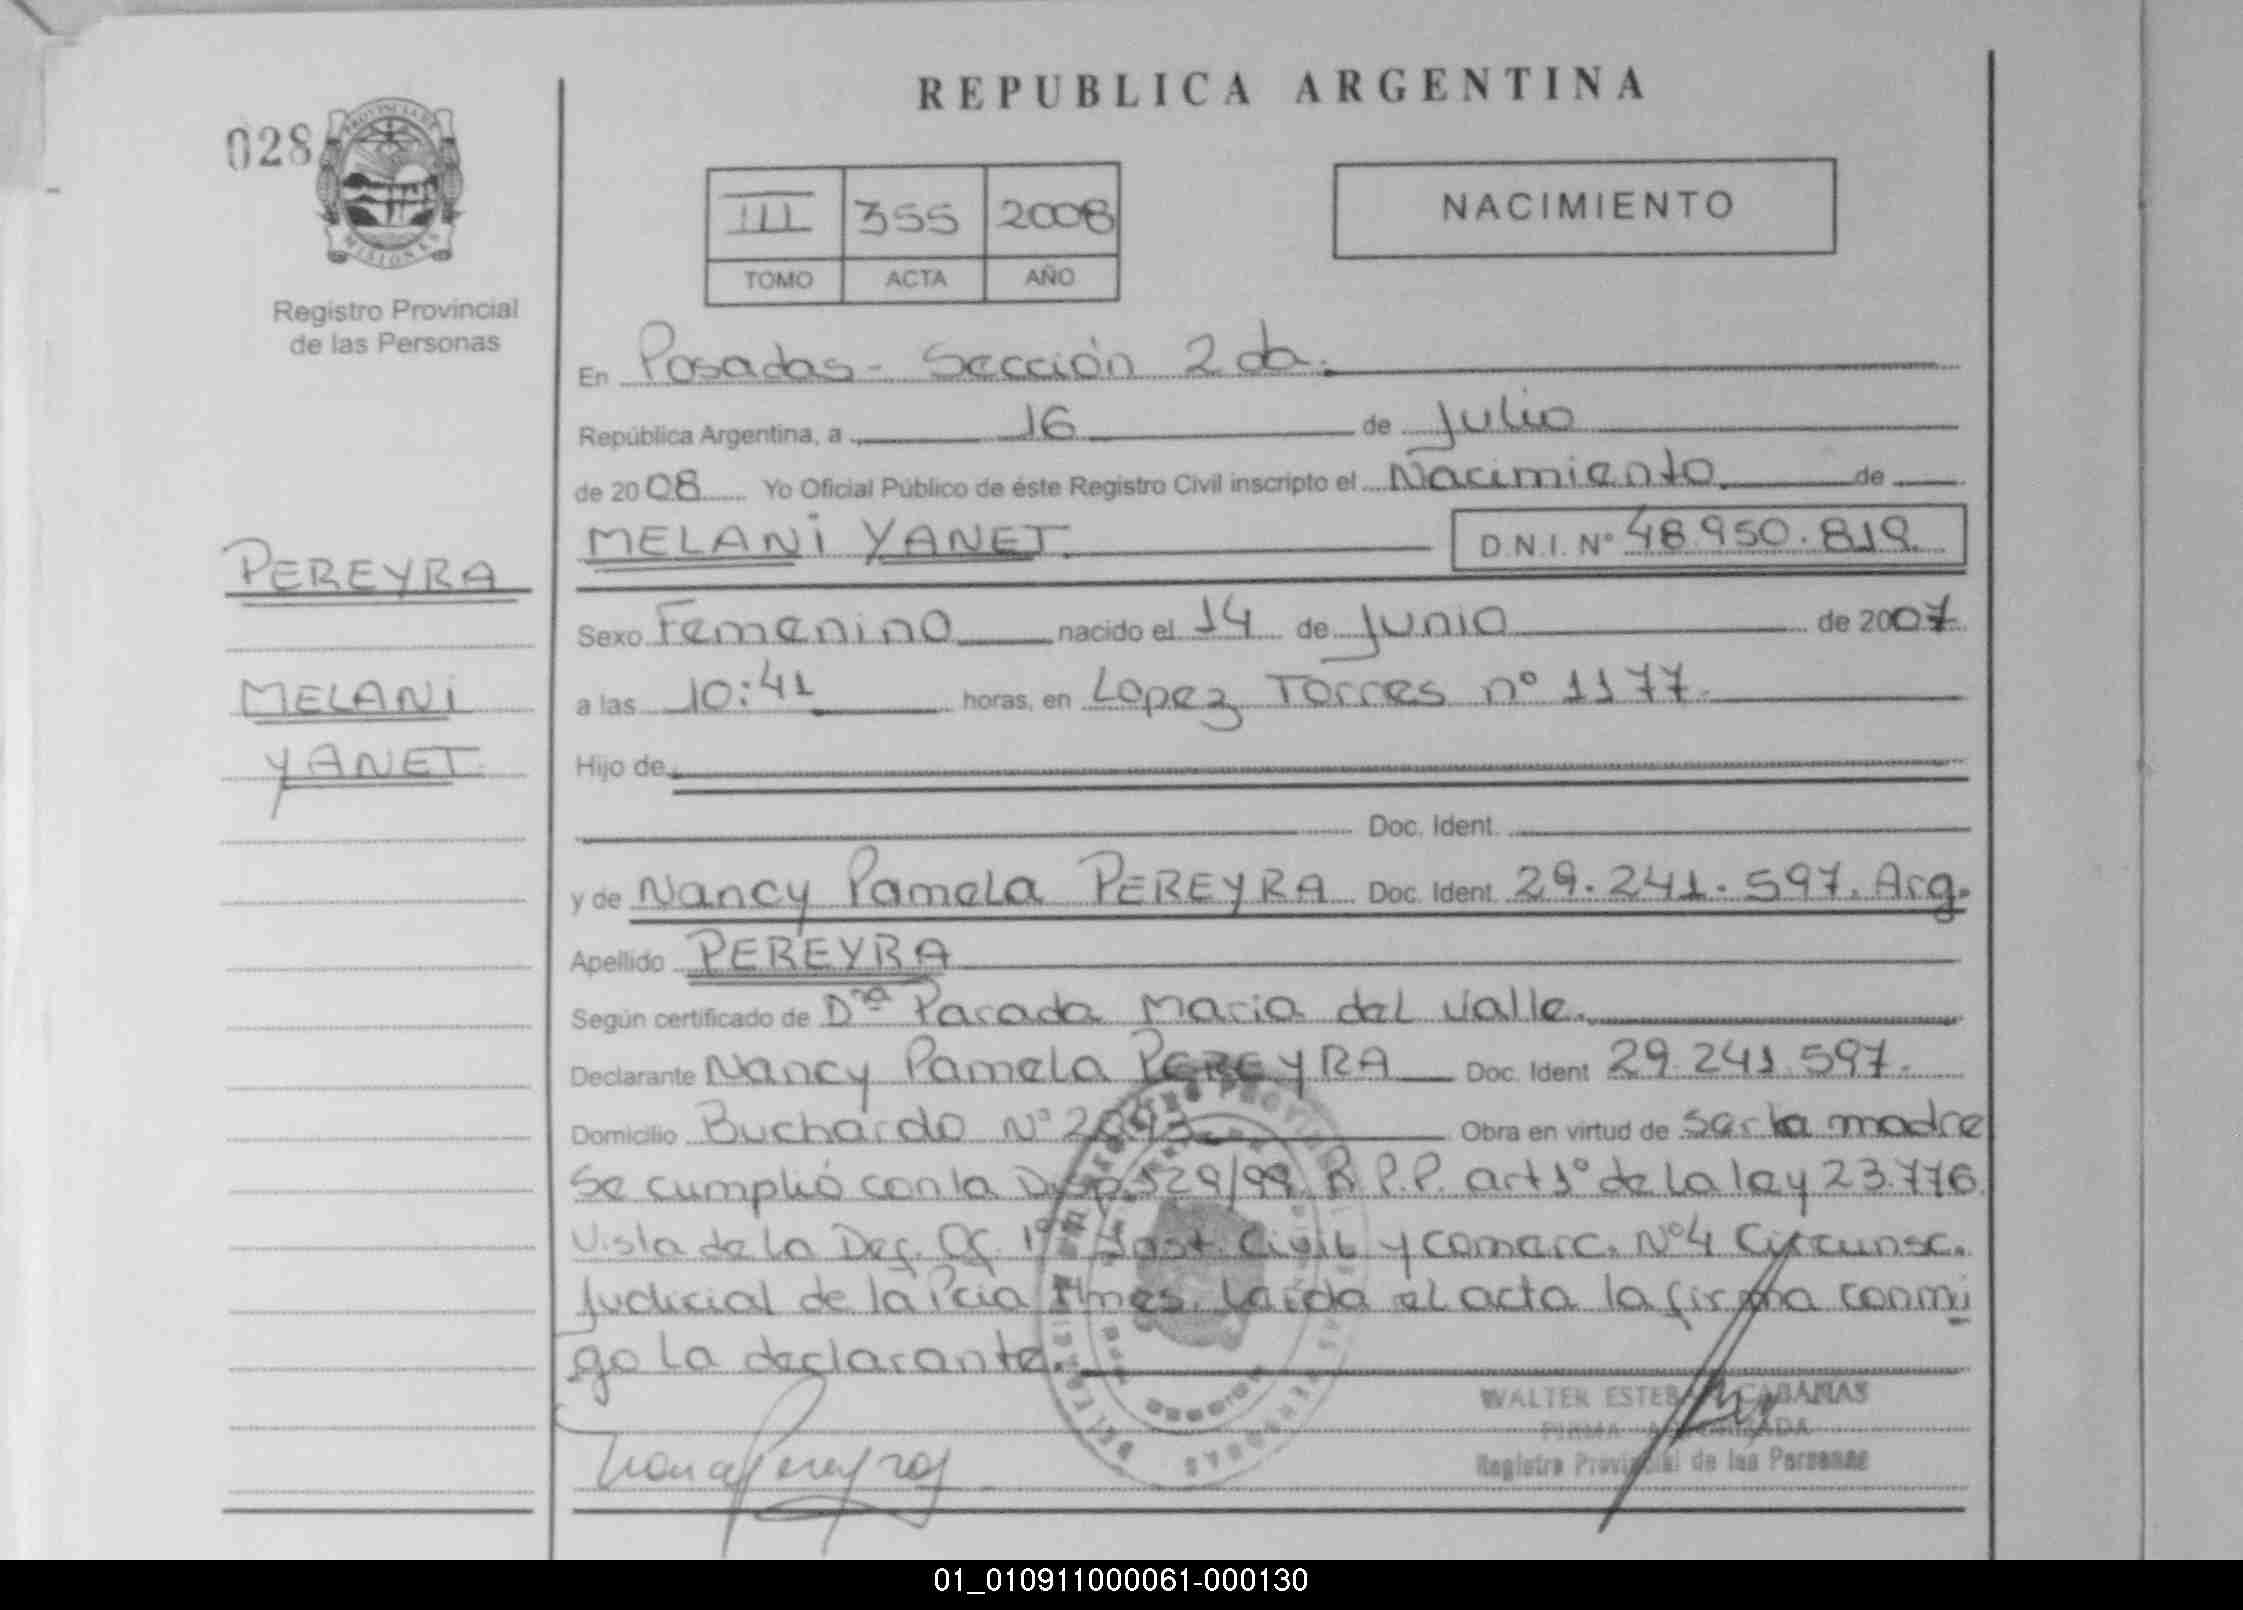 REPUBLICA ARGENTINA
028
PROVINCIA DE
MISIONES
Registro Provincial
de las Personas
III 355 2008
TOMO ACTA AÑO
NACIMIENTO
En Posadas - Sección 2da.
República Argentina, a 16 de Julio
de 2008 Yo Oficial Público de éste Registro Civil inscripto el Nacimiento de
MELANi YANET D.N.I. Nº 48.950.819
PEREYRA
Sexo Femenino nacido el 14 de Junio de 2007
MELANi
a las 10:41 horas, en Lopez Torres nº 1177.
YANET
Hijo de
Doc. Ident.
y de Nancy Pamela PEREYRA Doc. Ident. 29.241.597. Arg.
Apellido PEREYRA
Según certificado de Dra Parada Maria del Valle.
Declarante Nancy Pamela PEREYRA Doc. Ident 29.241.597.
Domicilio Buchardo Nº Obra en virtud de ser la madre
Se cumplió con la Disp. 529/99 R.P.P. art 1º de la ley 23.776
Vista de la Def. Of. 1ª Inst. Civil y Comerc. Nº4 Circunsc.
Judicial de la Pcia Mnes. Leida el acta la firma conmi
go la declarante.
WALTER ESTEBAN CABAÑAS
FIRMA AUTORIZADA
Registro Provincial de las Personas
01_010911000061-000130